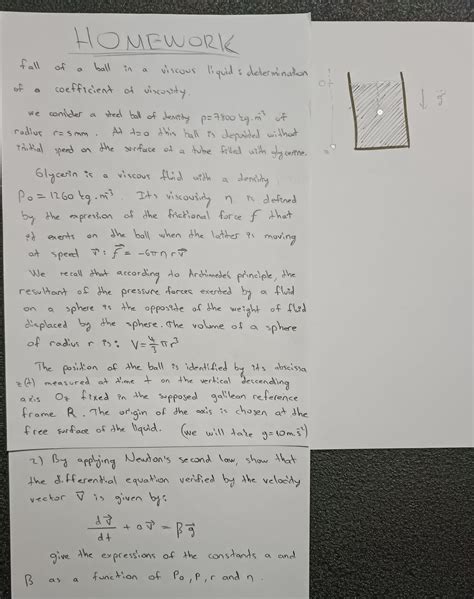 HOMEWORK
fall of a ball in a viscous liquid: determination
of a coefficient of viscosity.
we consider a steel ball of density ρ=7800 kg.m³ of
radius r=5mm. At t=0 this ball is deposited without
initial speed on the surface of a tube filled with glycerine.
Glycerin is a viscous fluid with a density
ρ₀=1260 kg.m³. Its viscousity η is defined
by the expression of the frictional force f that
it exerts on the ball when the latter is moving
at speed v⃗: f⃗=-6πηrv⃗
We recall that according to Archimede's principle, the
resultant of the pressure forces exerted by a fluid
on a sphere is the opposite of the weight of fluid
displaced by the sphere. The volume of a sphere
of radius r is: V=4/3πr³
The position of the ball is identified by its abscissa
z(t) measured at time t on the vertical descending
axis Oz fixed in the supposed galilean reference
frame R. The origin of the axis is chosen at the
free surface of the liquid. (we will take g=10m.s²)
2) By applying Newton's second law, show that
the differential equation verified by the velocity
vector v⃗ is given by:
dv⃗/dt + av⃗ = βg⃗
give the expressions of the constants a and
β as a function of ρ₀, ρ, r and η.